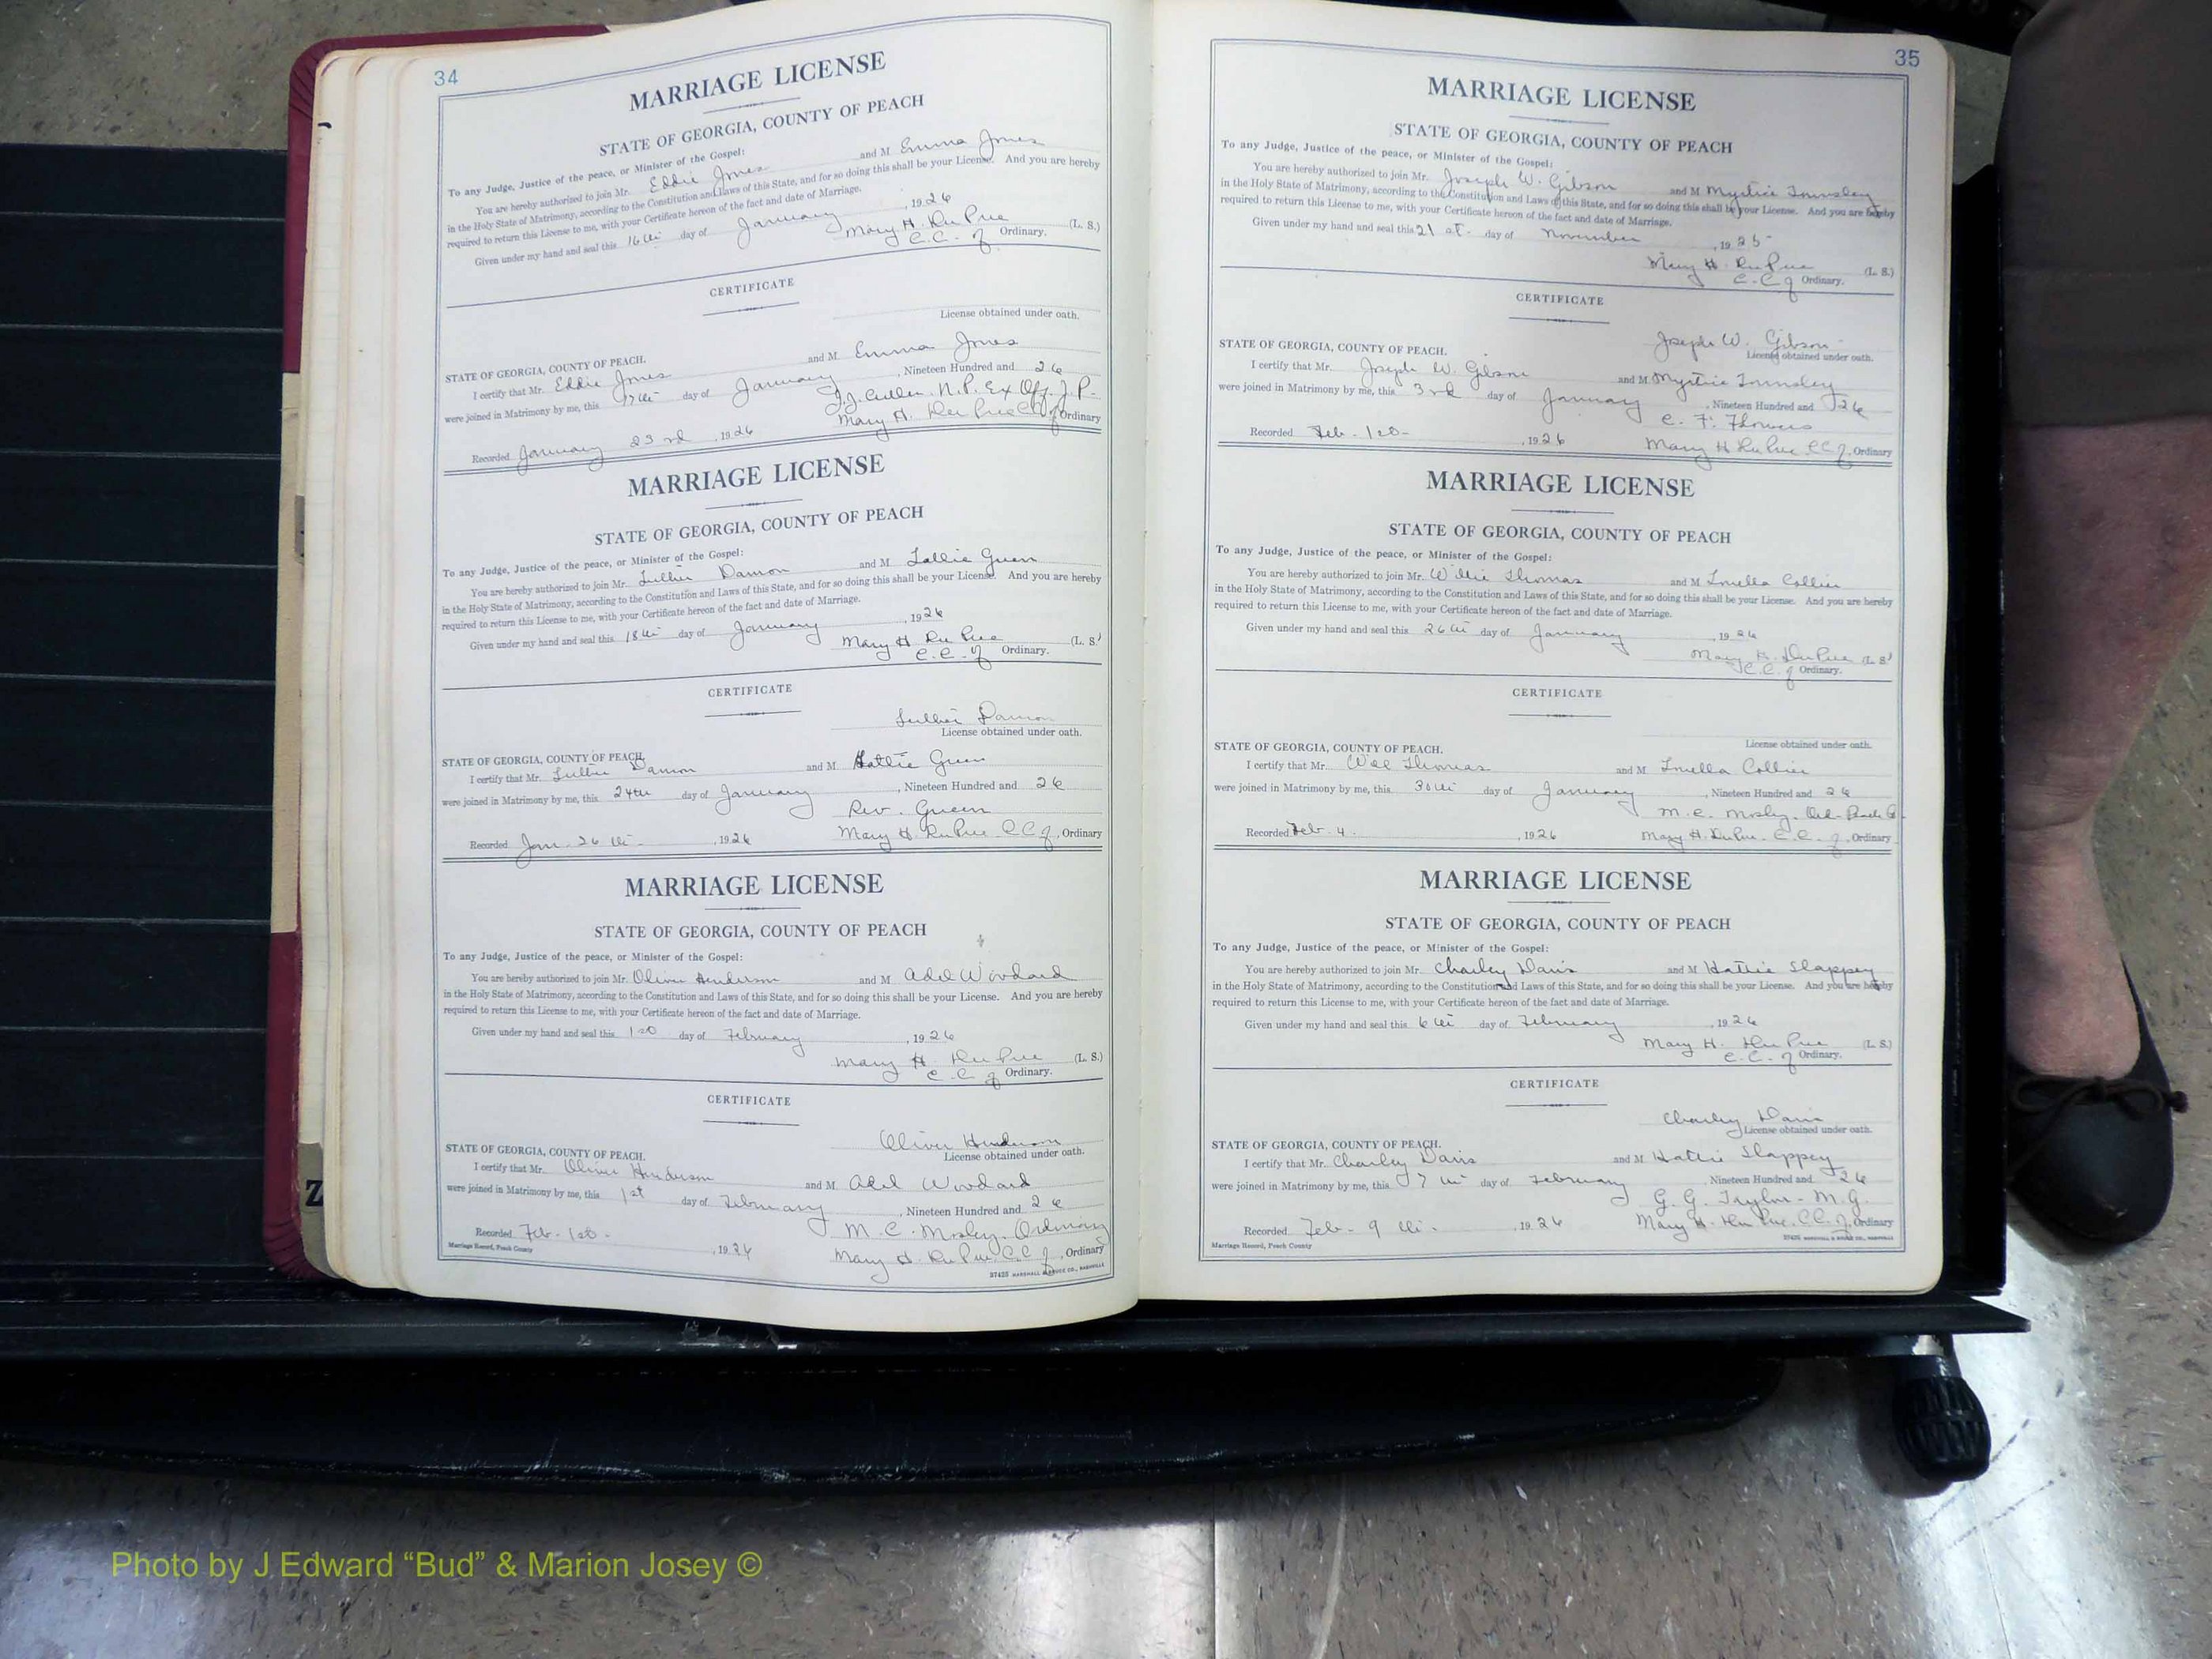 34
MARRIAGE LICENSE
STATE OF GEORGIA, COUNTY OF PEACH
To any Judge, Justice of the peace, or Minister of the Gospel:
You are hereby authorized to join Mr. Eddie Jones and M Emma Jones
in the Holy State of Matrimony, according to the Constitution and Laws of this State, and for so doing this shall be your License. And you are hereby
required to return this License to me, with your Certificate hereon of the fact and date of Marriage.
Given under my hand and seal this 16th day of January, 1926
Mary H. DuPree (L. S.)
C.C. of Ordinary.
CERTIFICATE
License obtained under oath.
STATE OF GEORGIA, COUNTY OF PEACH.
I certify that Mr. Eddie Jones and M. Emma Jones
were joined in Matrimony by me, this 17th day of January, Nineteen Hundred and 26
N.P. Ex Off. J.P.
Recorded January 23rd, 1926 Mary H. DuPree C.C. of Ordinary
MARRIAGE LICENSE
STATE OF GEORGIA, COUNTY OF PEACH
To any Judge, Justice of the peace, or Minister of the Gospel:
You are hereby authorized to join Mr. Luther Damon and M Green
in the Holy State of Matrimony, according to the Constitution and Laws of this State, and for so doing this shall be your License. And you are hereby
required to return this License to me, with your Certificate hereon of the fact and date of Marriage.
Given under my hand and seal this 18th day of January, 1926
Mary H DuPree (L. S.)
C.C. of Ordinary.
CERTIFICATE
Luther Damon
License obtained under oath.
STATE OF GEORGIA, COUNTY OF PEACH.
I certify that Mr. Luther Damon and M. Green
were joined in Matrimony by me, this 24th day of January, Nineteen Hundred and 26
Rev. Green
Recorded Jan. 26th, 1926 Mary H. DuPree C.C. of, Ordinary
MARRIAGE LICENSE
STATE OF GEORGIA, COUNTY OF PEACH
To any Judge, Justice of the peace, or Minister of the Gospel:
You are hereby authorized to join Mr. Oliver Henderson and M Adel Woodard
in the Holy State of Matrimony, according to the Constitution and Laws of this State, and for so doing this shall be your License. And you are hereby
required to return this License to me, with your Certificate hereon of the fact and date of Marriage.
Given under my hand and seal this 1st day of February, 1926
Mary H. DuPree (L. S.)
C.C. of Ordinary.
CERTIFICATE
Oliver Henderson
License obtained under oath.
STATE OF GEORGIA, COUNTY OF PEACH.
I certify that Mr. Oliver Henderson and M. Adel Woodard
were joined in Matrimony by me, this 1st day of February, Nineteen Hundred and 26
M. C. Mosley, Ordinary
Recorded Feb. 1st, 1926 Mary H. DuPree C.C. of, Ordinary
Marriage Record, Peach County 27425 MARSHALL & BRUCE CO., NASHVILLE
35
MARRIAGE LICENSE
STATE OF GEORGIA, COUNTY OF PEACH
To any Judge, Justice of the peace, or Minister of the Gospel:
You are hereby authorized to join Mr. Joseph W. Gibson and M Myrtice Townsley
in the Holy State of Matrimony, according to the Constitution and Laws of this State, and for so doing this shall be your License. And you are hereby
required to return this License to me, with your Certificate hereon of the fact and date of Marriage.
Given under my hand and seal this 21st day of November, 1925
Mary H DuPree (L. S.)
C.C. of Ordinary.
CERTIFICATE
Joseph W. Gibson
License obtained under oath.
STATE OF GEORGIA, COUNTY OF PEACH.
I certify that Mr. Joseph W. Gibson and M. Myrtice Townsley
were joined in Matrimony by me, this 3rd day of January, Nineteen Hundred and 26
C. F. Flowers
Recorded Feb. 1st, 1926 Mary H DuPree C.C. of, Ordinary
MARRIAGE LICENSE
STATE OF GEORGIA, COUNTY OF PEACH
To any Judge, Justice of the peace, or Minister of the Gospel:
You are hereby authorized to join Mr. Willie Thomas and M Louella Collier
in the Holy State of Matrimony, according to the Constitution and Laws of this State, and for so doing this shall be your License. And you are hereby
required to return this License to me, with your Certificate hereon of the fact and date of Marriage.
Given under my hand and seal this 26th day of January, 1926
Mary H. DuPree (L. S.)
C.C. of Ordinary.
CERTIFICATE
License obtained under oath.
STATE OF GEORGIA, COUNTY OF PEACH.
I certify that Mr. Thomas and M Louella Collier
were joined in Matrimony by me, this 30th day of January, Nineteen Hundred and 26
M. C. Mosley, Ord. Peach Co
Recorded Feb. 4, 1926 Mary H. DuPree C.C. of, Ordinary
MARRIAGE LICENSE
STATE OF GEORGIA, COUNTY OF PEACH
To any Judge, Justice of the peace, or Minister of the Gospel:
You are hereby authorized to join Mr. Charley Davis and M Hattie Slappey
in the Holy State of Matrimony, according to the Constitution and Laws of this State, and for so doing this shall be your License. And you are hereby
required to return this License to me, with your Certificate hereon of the fact and date of Marriage.
Given under my hand and seal this 6th day of February, 1926
Mary H. DuPree (L. S.)
C.C. of Ordinary.
CERTIFICATE
Charley Davis
License obtained under oath.
STATE OF GEORGIA, COUNTY OF PEACH.
I certify that Mr. Charley Davis and M Hattie Slappey
were joined in Matrimony by me, this 7th day of February, Nineteen Hundred and 26
G. G. Taylor - M.G.
Recorded Feb. 9th, 1926 Mary H. DuPree C.C. of, Ordinary
Marriage Record, Peach County 27425 MARSHALL & BRUCE CO., NASHVILLE
Z
Photo by J Edward “Bud” & Marion Josey ©